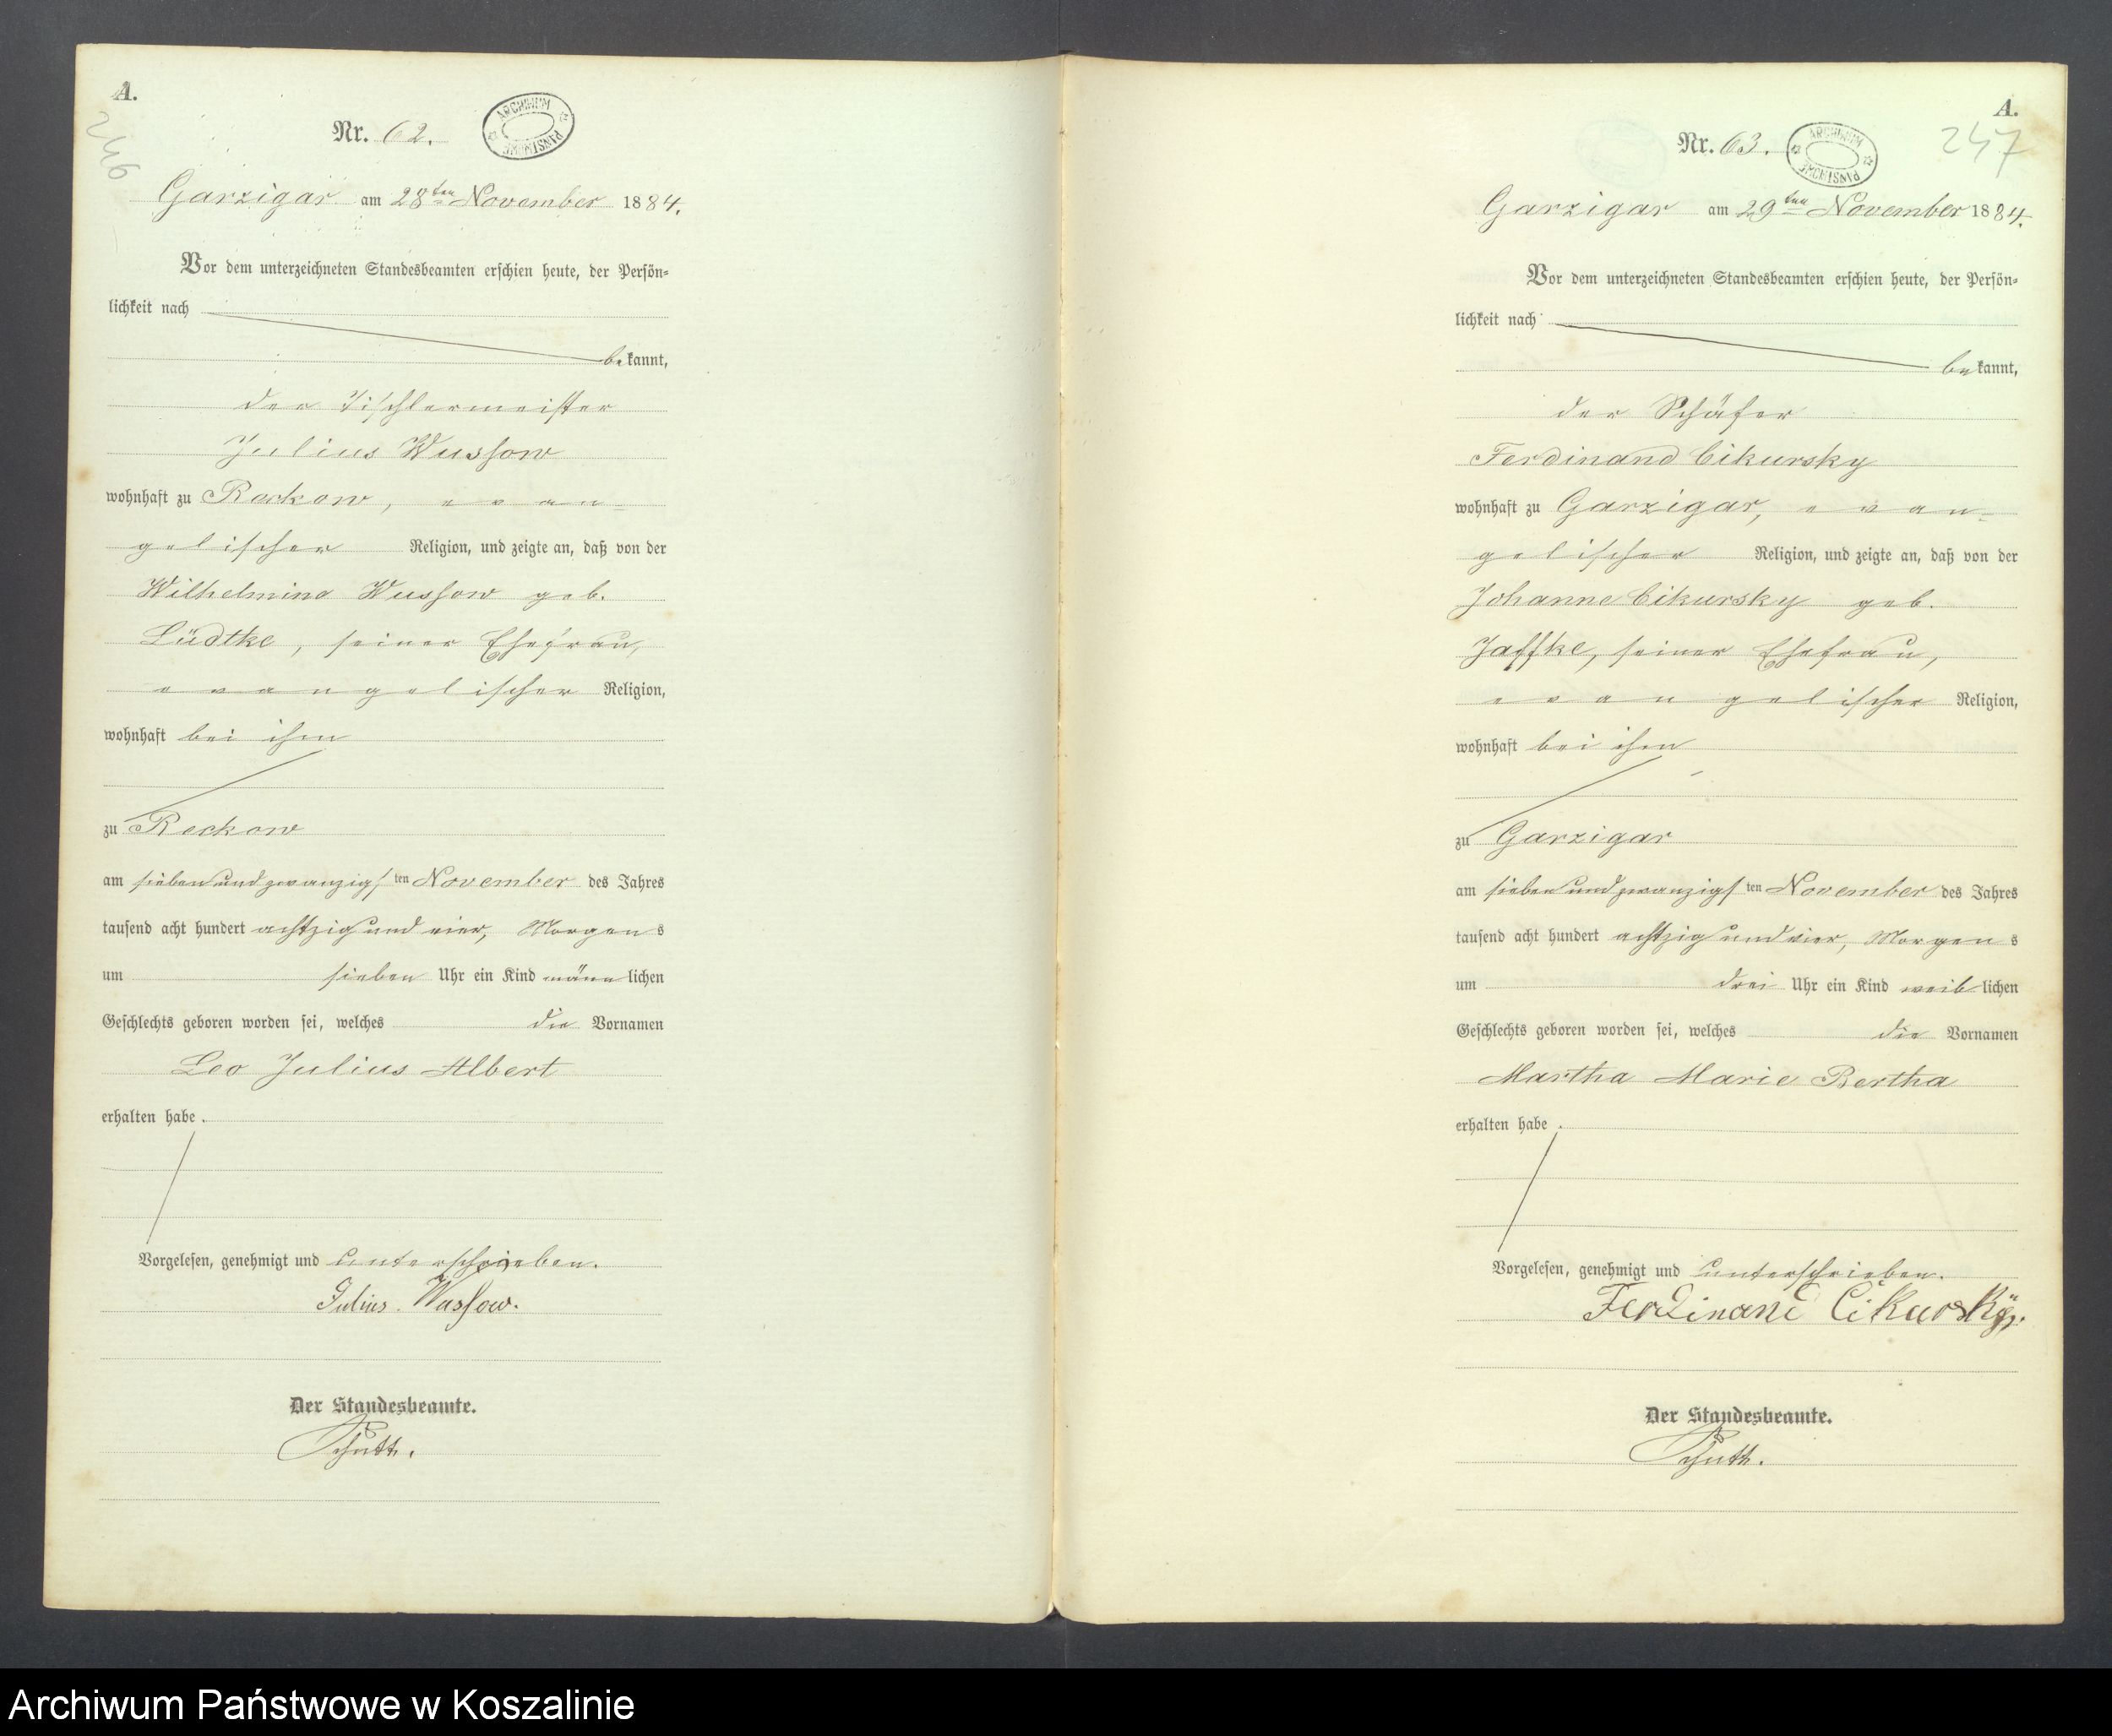 A.
246
Nr. 62.
ARCHIWUM PAŃSTWOWE
Garzigar am 28ten November 1884.
Vor dem unterzeichneten Standesbeamten erschien heute, der Persön=
lichkeit nach
bekannt,
der Tischlermeister
Julius Wussow
wohnhaft zu Reckow, evan=
gelischer Religion, und zeigte an, daß von der
Wilhelmine Wussow geb.
Lüdtke, seiner Ehefrau,
evangelischer Religion,
wohnhaft bei ihm
zu Reckow
am sieben und zwanzigsten November des Jahres
tausend acht hundert achtzig und vier, Morgens
um sieben Uhr ein Kind männlichen
Geschlechts geboren worden sei, welches die Vornamen
Leo Julius Albert
erhalten habe.
Vorgelesen, genehmigt und unterschrieben.
Julius Wussow.
Der Standesbeamte.
A.
247
Nr. 63.
ARCHIWUM PAŃSTWOWE
Garzigar am 29ten November 1884.
Vor dem unterzeichneten Standesbeamten erschien heute, der Persön=
lichkeit nach
bekannt,
der Schäfer
Ferdinand Cikursky
wohnhaft zu Garzigar, evan=
gelischer Religion, und zeigte an, daß von der
Johanne Cikursky geb.
Jaffke, seiner Ehefrau,
evangelischer Religion,
wohnhaft bei ihm
zu Garzigar
am sieben und zwanzigsten November des Jahres
tausend acht hundert achtzig und vier, Morgens
um drei Uhr ein Kind weiblichen
Geschlechts geboren worden sei, welches die Vornamen
Martha Marie Bertha
erhalten habe.
Vorgelesen, genehmigt und unterschrieben.
Ferdinand Cikursky.
Der Standesbeamte.
Archiwum Państwowe w Koszalinie